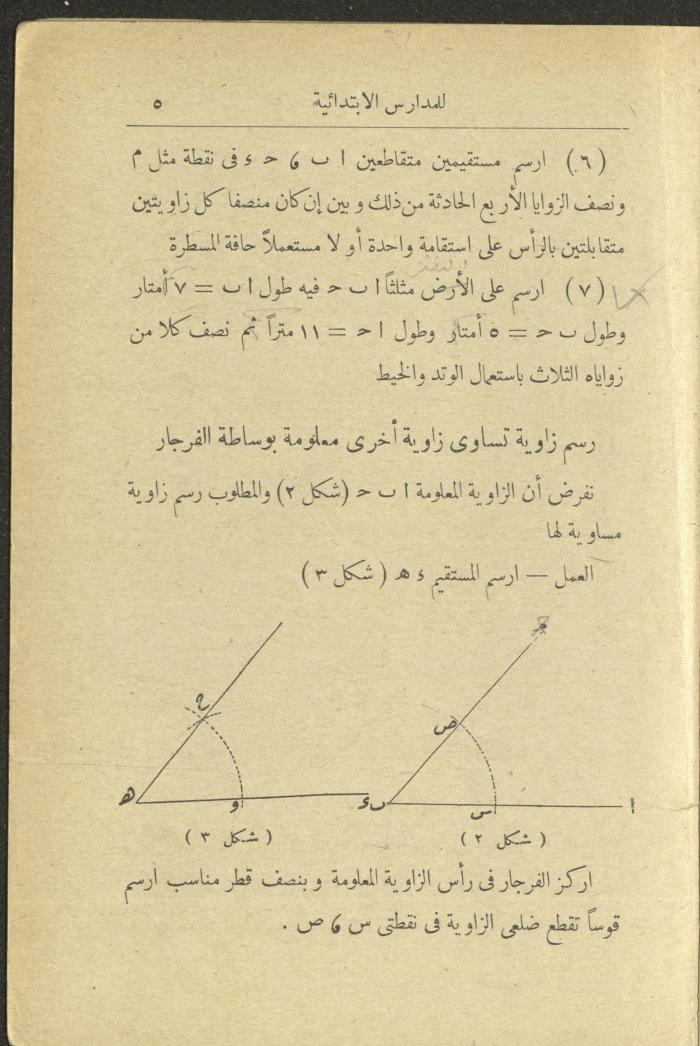 للمدارس الابتدائية ٥
(٦) ارسم مستقيمين متقاطعين ا ب ، ح ء فى نقطة مثل م
ونصف الزوايا الأربع الحادثة من ذلك وبين إن كان منصفا كل زاويتين
متقابلتين بالرأس على استقامة واحدة أو لا مستعملاً حافة المسطرة
(٧) ارسم على الأرض مثلثاً ا ب ح فيه طول ا ب = ٧ أمتار
وطول ب ح = ٥ أمتار وطول ا ح = ١١ متراً ثم نصف كلا من
زواياه الثلاث باستعمال الوتد والخيط
رسم زاوية تساوى زاوية أخرى معلومة بوساطة الفرجار
نفرض أن الزاوية المعلومة ا ب ح (شكل ٢) والمطلوب رسم زاوية
مساوية لها
العمل — ارسم المستقيم ء ه (شكل ٣)
ح
ص
ح
ا
س
ب
ء
و
ه
(شكل ٢)
(شكل ٣)
اركز الفرجار فى رأس الزاوية المعلومة وبنصف قطر مناسب ارسم
قوساً تقطع ضلعى الزاوية فى نقطتى س ، ص .